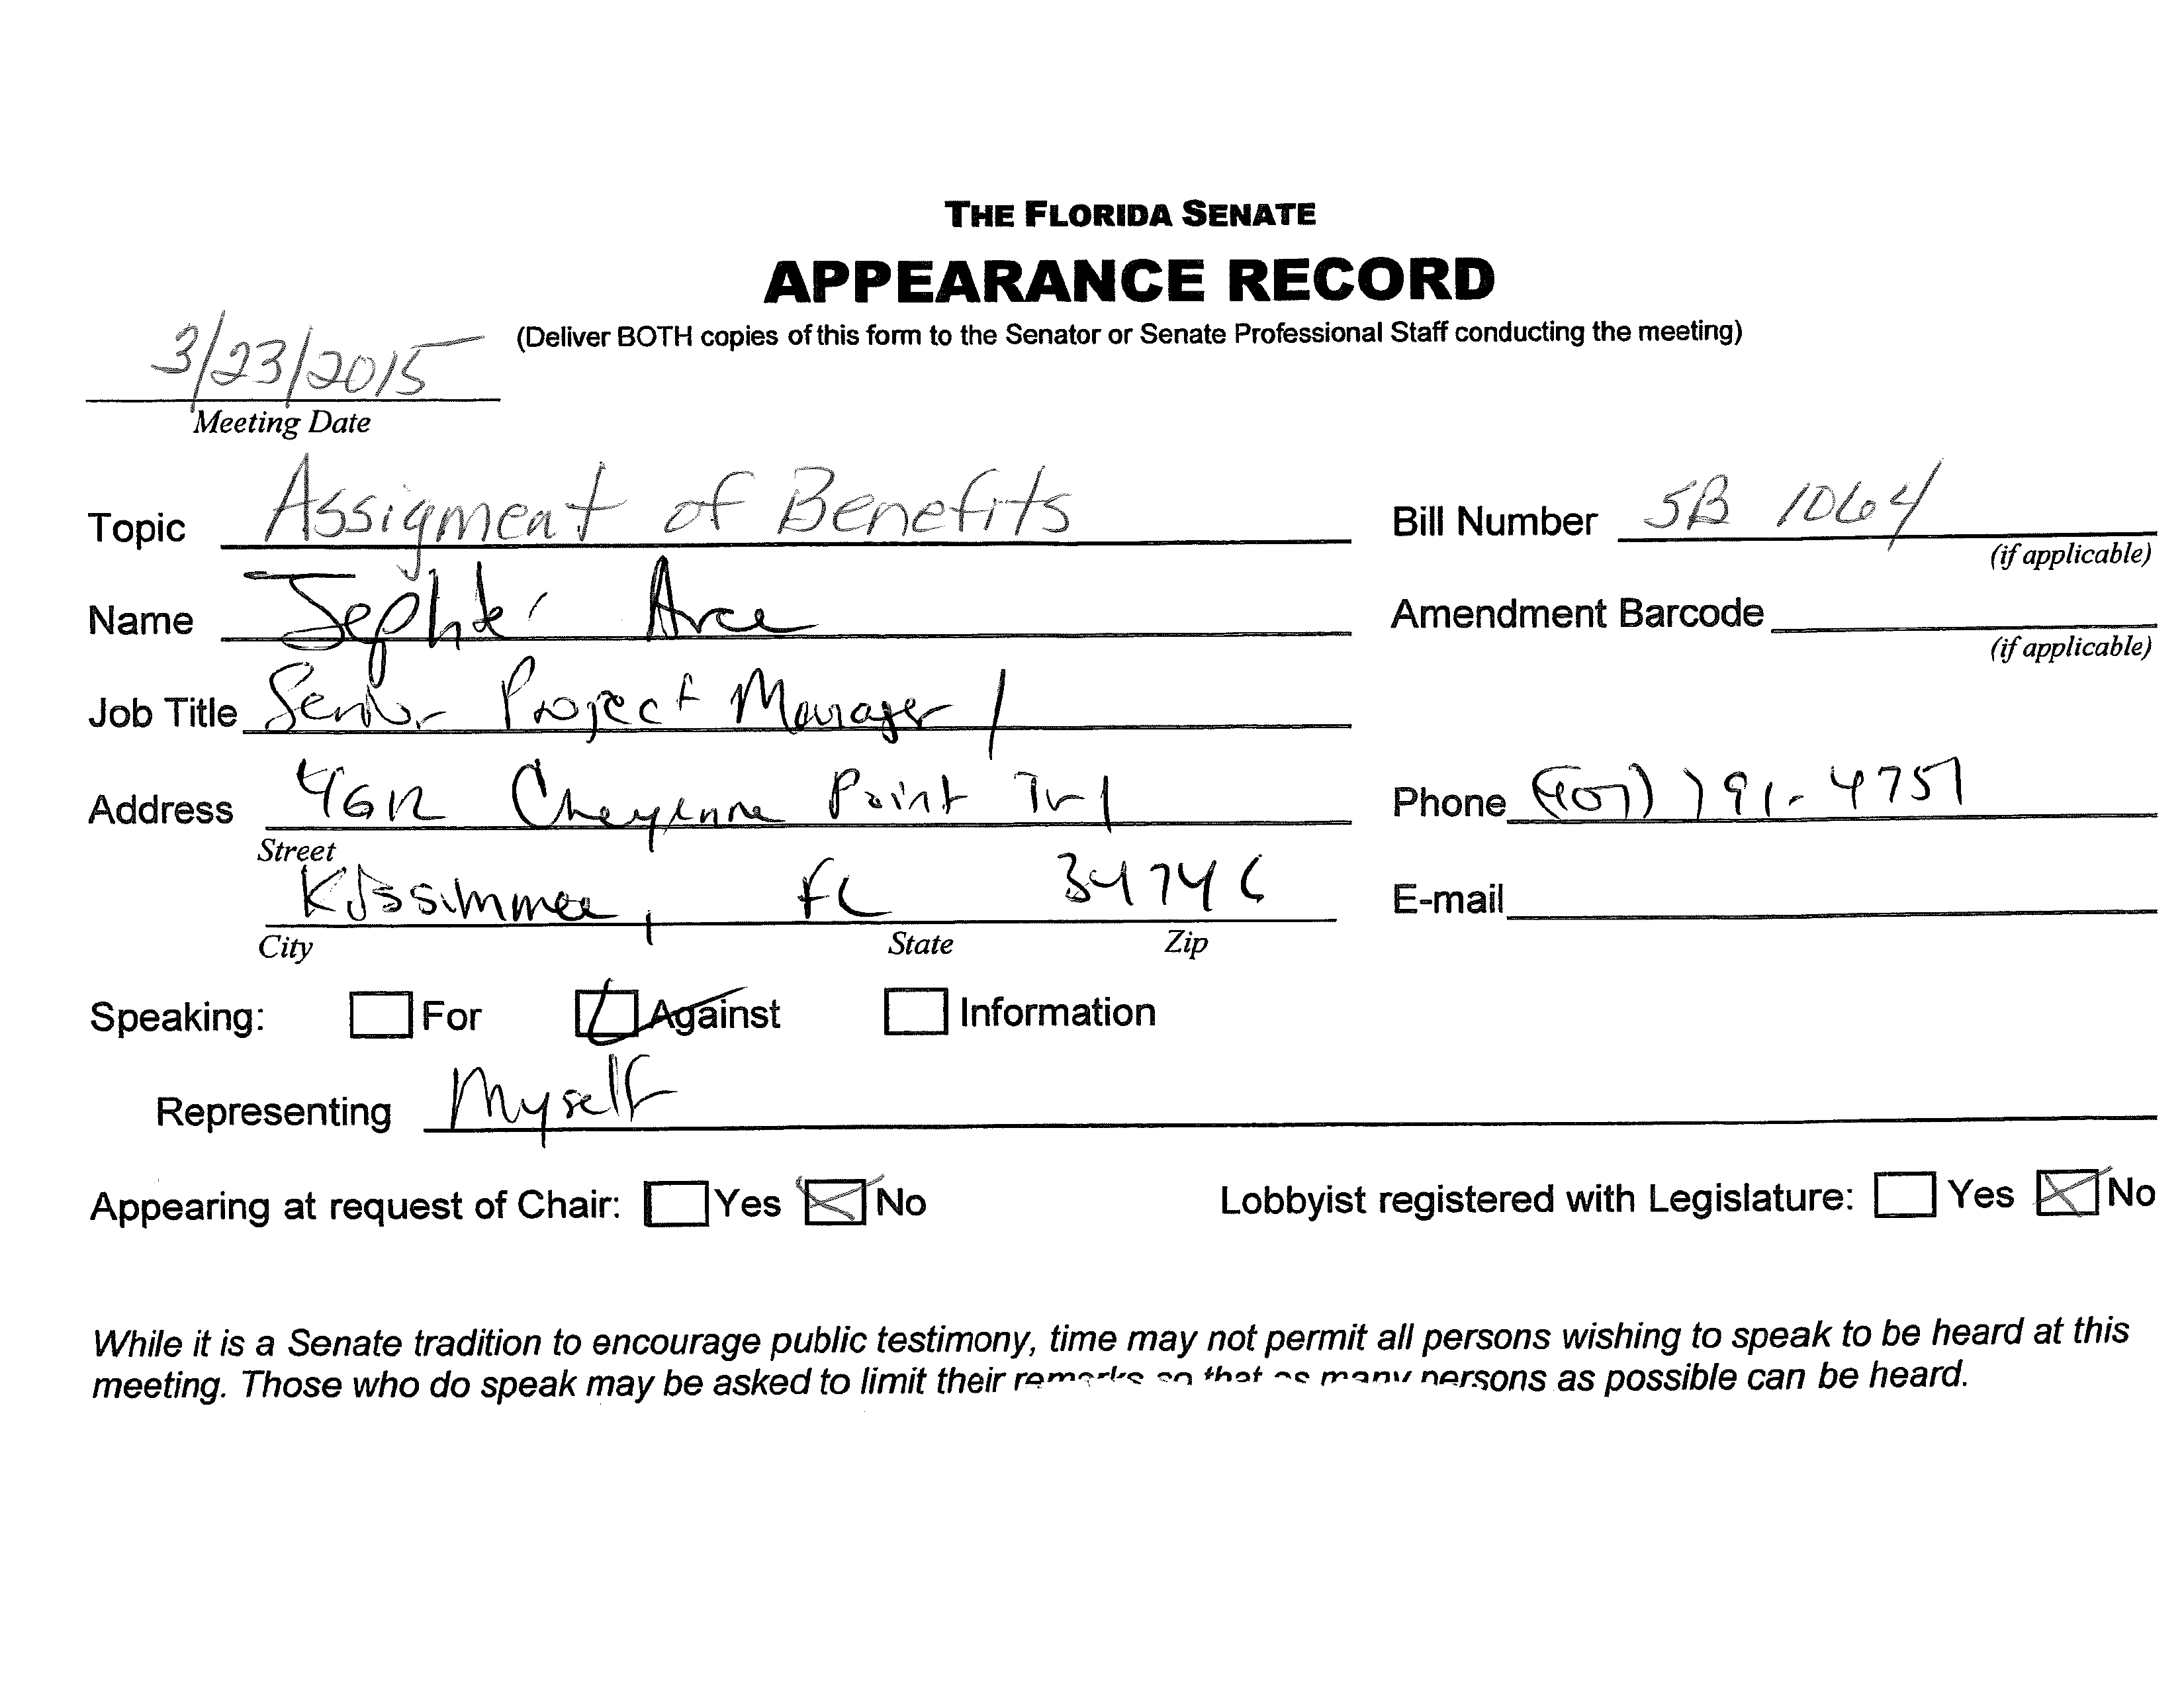 THE FLORIDA SENATE
APPEARANCE RECORD
(Deliver BOTH copies of this form to the Senator or Senate Professional Staff conducting the meeting)
3/23/2015
Meeting Date
Topic Assigment of Benefits Bill Number SB 1064
(if applicable)
Name Arce Amendment Barcode
(if applicable)
Job Title Senior Project Manager /
Address 4612 Cheyenne Point Trl Phone (407) 791-4751
Street
Kissimmee, FL 34746 E-mail
City State Zip
Speaking: For Against Information
Representing Myself
Appearing at request of Chair: Yes No Lobbyist registered with Legislature: Yes No
While it is a Senate tradition to encourage public testimony, time may not permit all persons wishing to speak to be heard at this
meeting. Those who do speak may be asked to limit their remarks so that as many persons as possible can be heard.